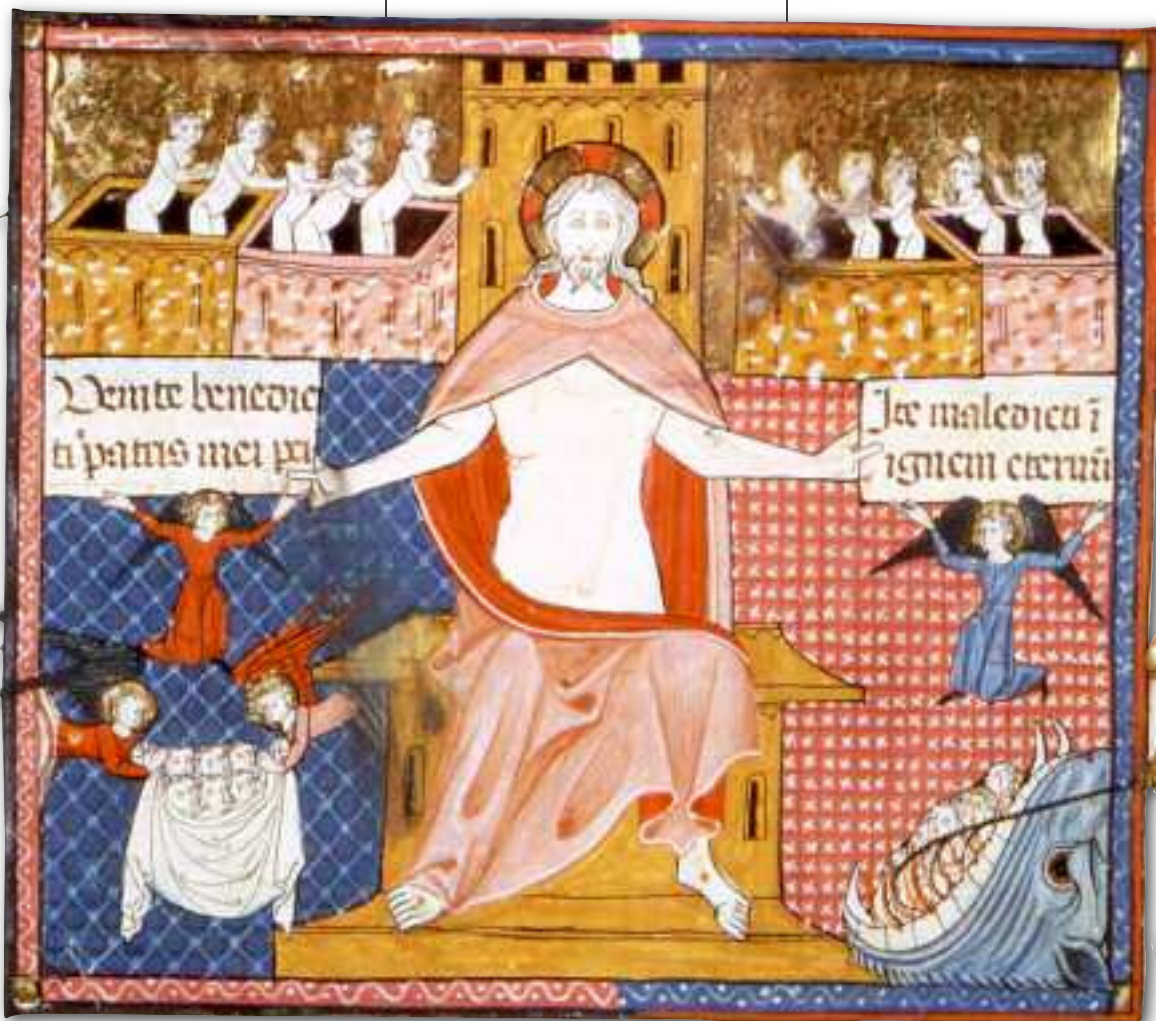 Venite benedic
ti patris mei pci
Ite maledicti ī
ignem eternū